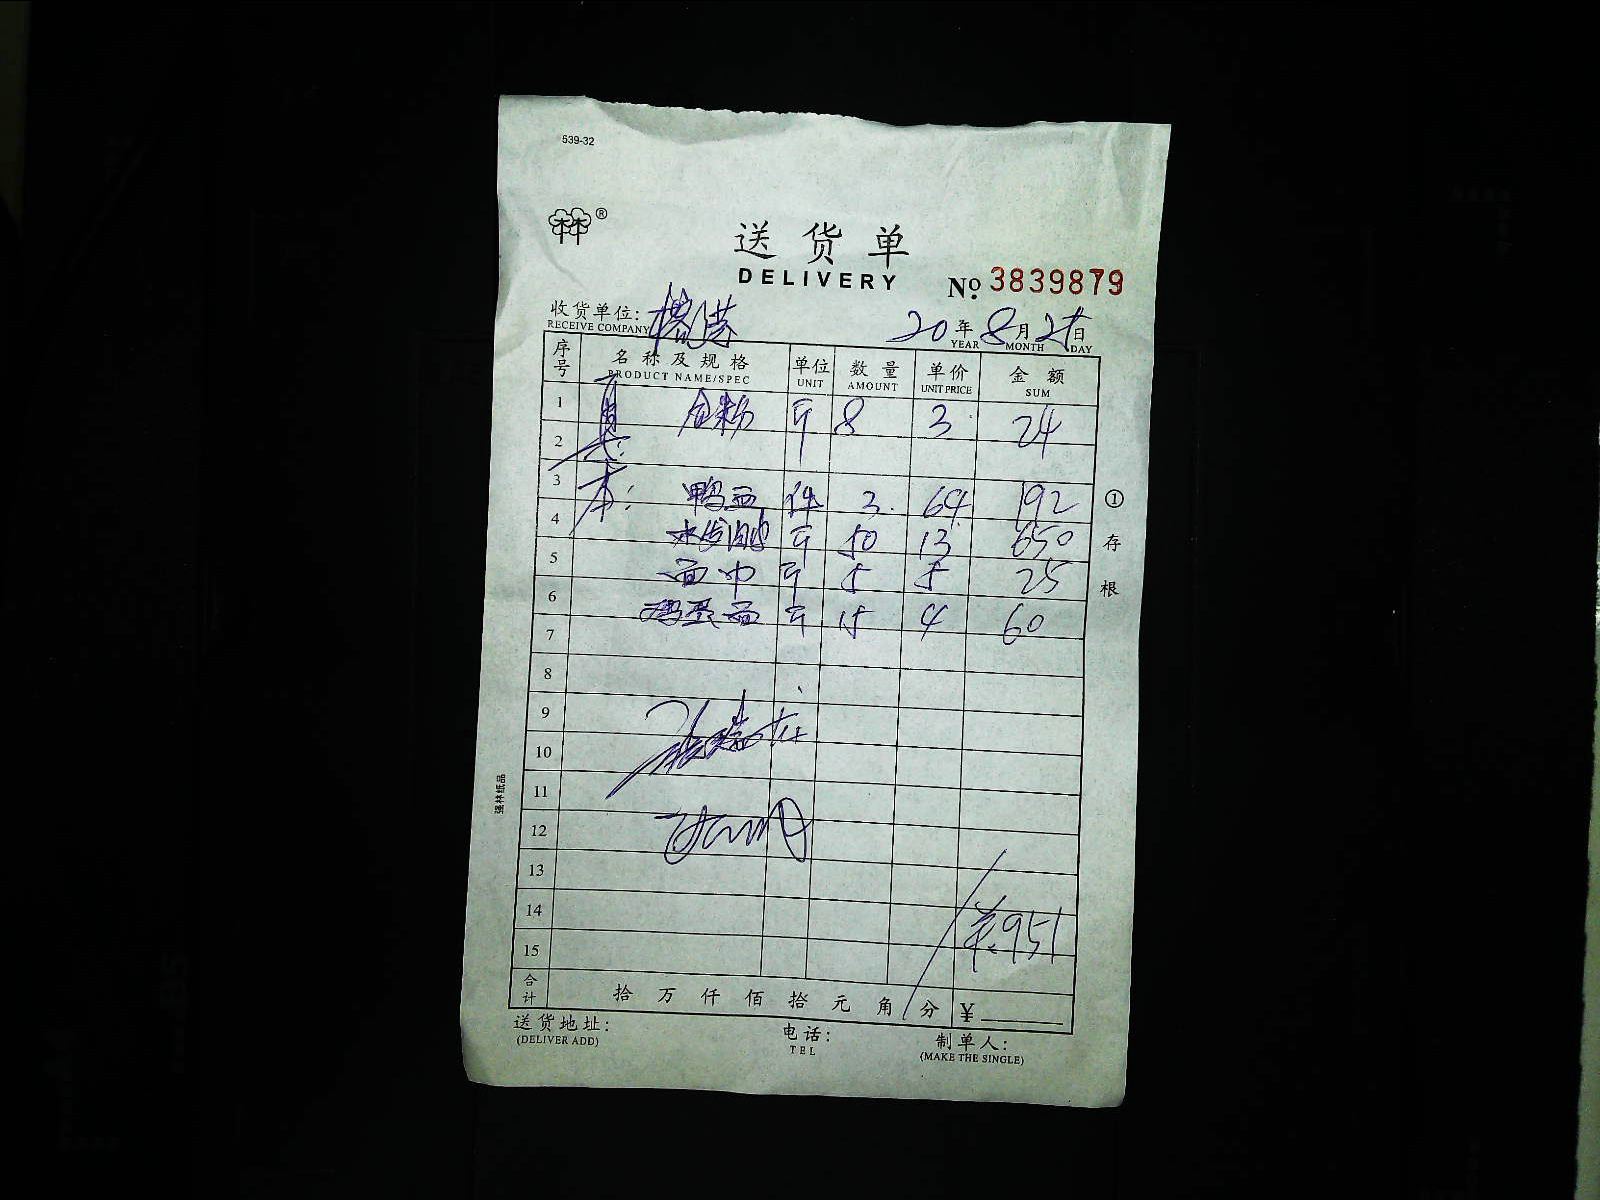 539-32
®
送货单
DELIVERY
No. 3839879
收货单位:
RECEIVE COMPANY
20年8月25日
YEAR MONTH DAY
序号 名称及规格 单位 数量 单价 金额
PRODUCT NAME/SPEC UNIT AMOUNT UNIT PRICE SUM
1 斤 8 3 24
2
3 本: 鸭血 件 3 64 192
4 水发 斤 50 13 650
5 面巾 斤 5 5 25
6 斤 15 4 60
7
8
9
10
11
12
13
14 ¥951
15
合计 拾万仟佰拾元角分 ¥
送货地址:
(DELIVER ADD)
电话:
TEL
制单人:
(MAKE THE SINGLE)
①存根
强林纸品